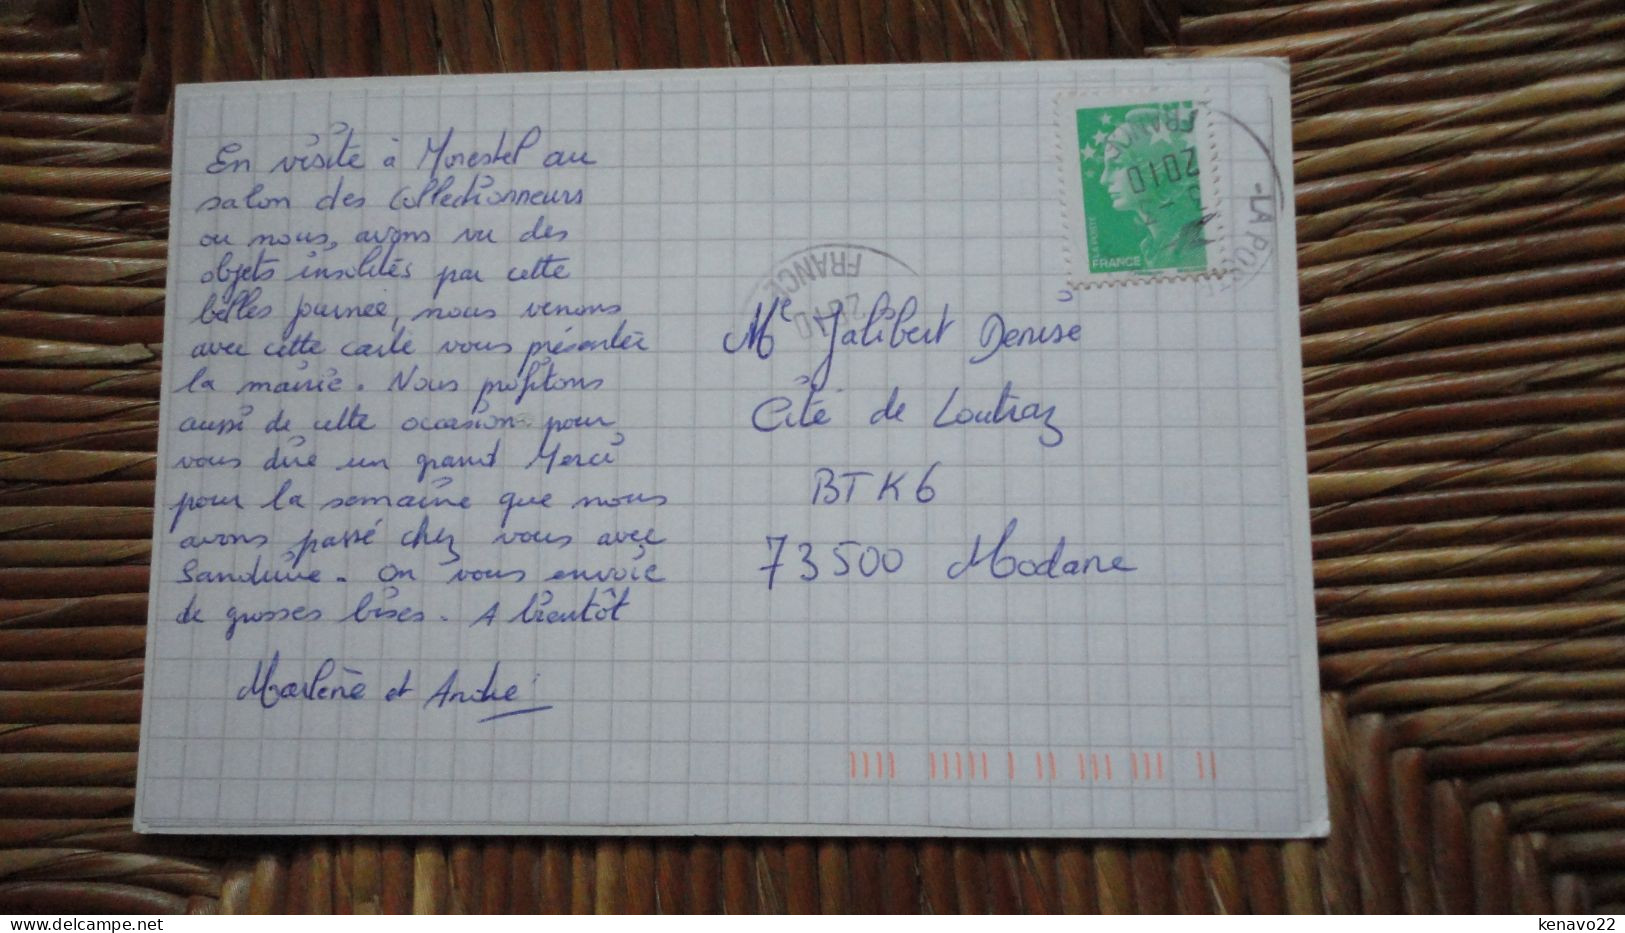 En visite à Morestel au
salon des Collectionneurs
ou nous, avons vu des
objets insolités par cette
belles journeé, nous venons
avec cette carte vous présenter
la mairie. Nous profitons
aussi de cette occasion pour
vous dire un grand Merci
pour la semaine que nous
avons passé chez vous avec
Sandrine. On vous envoie
de grosses bises. A bientôt
Marlène et André
LA POSTE
FRANCE
2010
FRANCE
LA POSTE
FRANCE
2010
Me Jalibert Denise
Cité de Loutraz
BT K6
73500 Modane
kenavo22